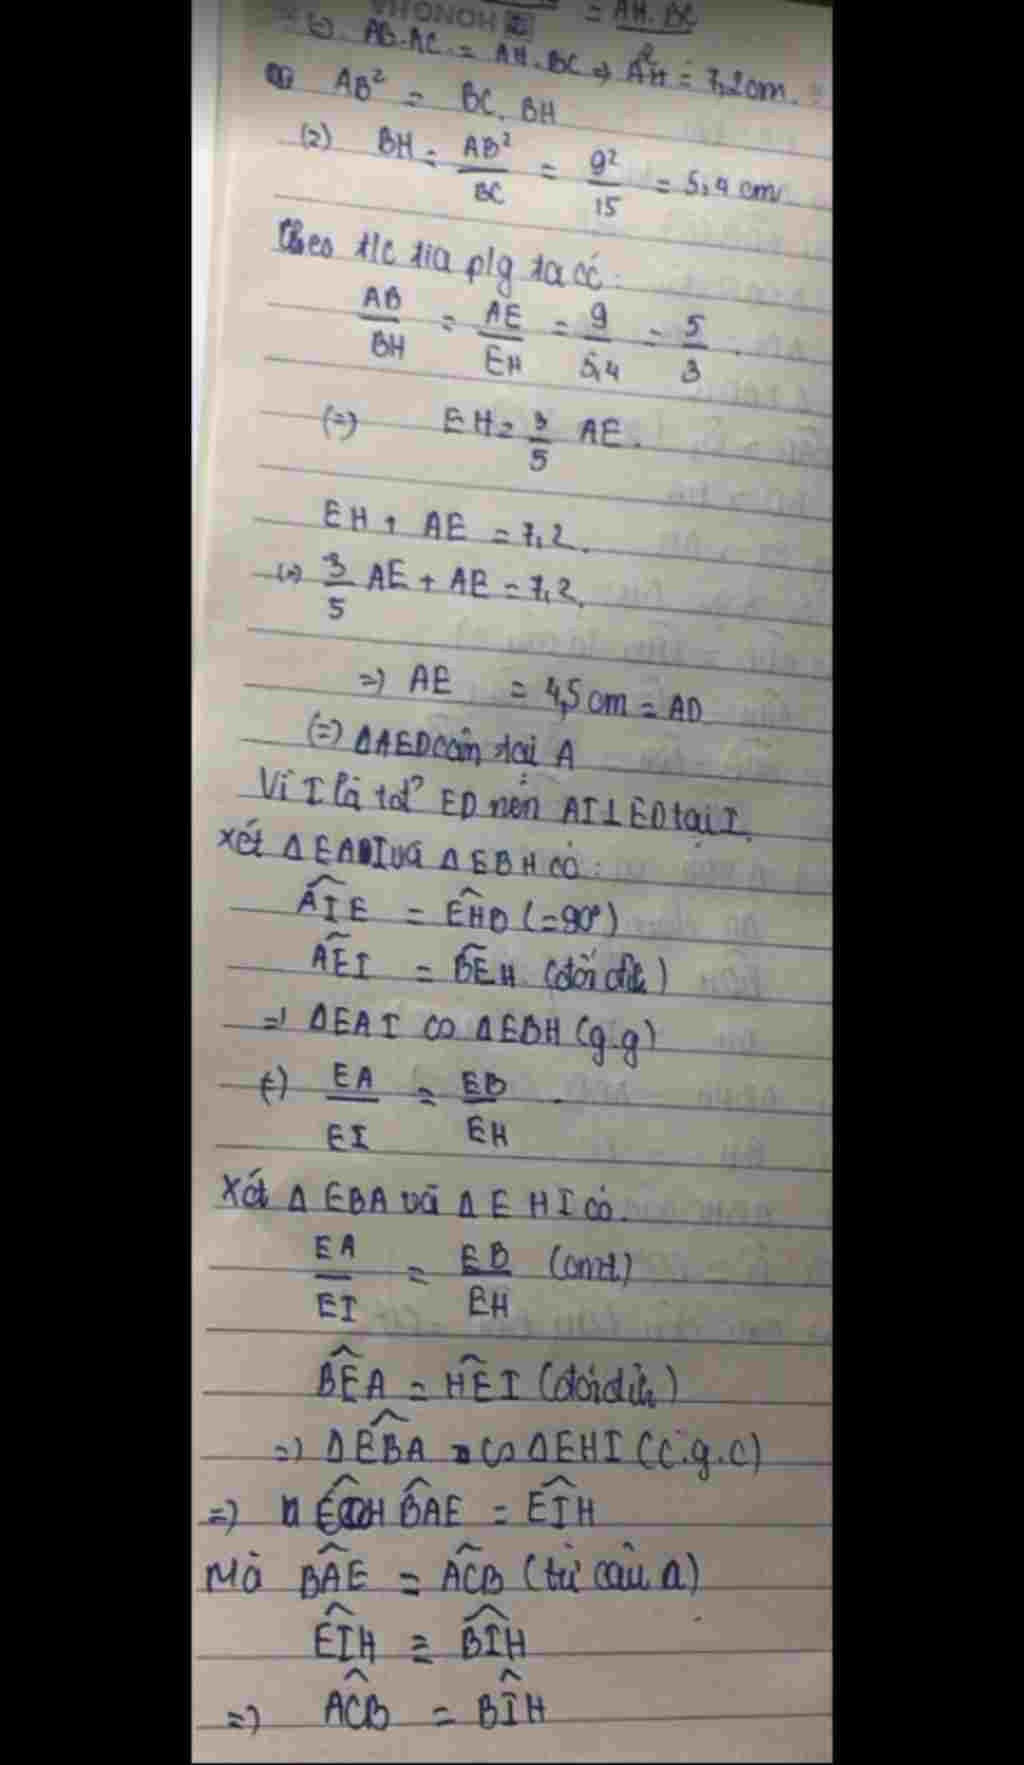 = AH.BC
HONGHA
(=) AB.AC = AH.BC => AH = 7,2cm.
AB² = BC.BH
(=) BH = AB²/BC = 9²/15 = 5,4 cm
theo t/c tia p/g ta có:
AB/BH = AE/EH = 9/5,4 = 5/3.
(=) EH = 3/5 AE.
EH + AE = 7,2.
(=) 3/5 AE + AE = 7,2.
=> AE = 4,5cm = AD
(=) ΔAED cân tại A
Vì I là tđ ED nên AI⊥ED tại I.
Xét ΔEAI và ΔEBH có:
AIE = EHB (=90°)
AEI = BEH (đối đỉnh)
=> ΔEAI ∽ ΔEBH (g.g)
(=) EA/EI = EB/EH.
Xét ΔEBA và ΔEHI có.
EA/EI = EB/EH (cmt)
BEA = HEI (đối đỉnh)
=> ΔEBA ∽ ΔEHI (c.g.c)
=> BAE = EIH
Mà BAE = ACB (từ câu a)
EIH = BIH
=> ACB = BIH